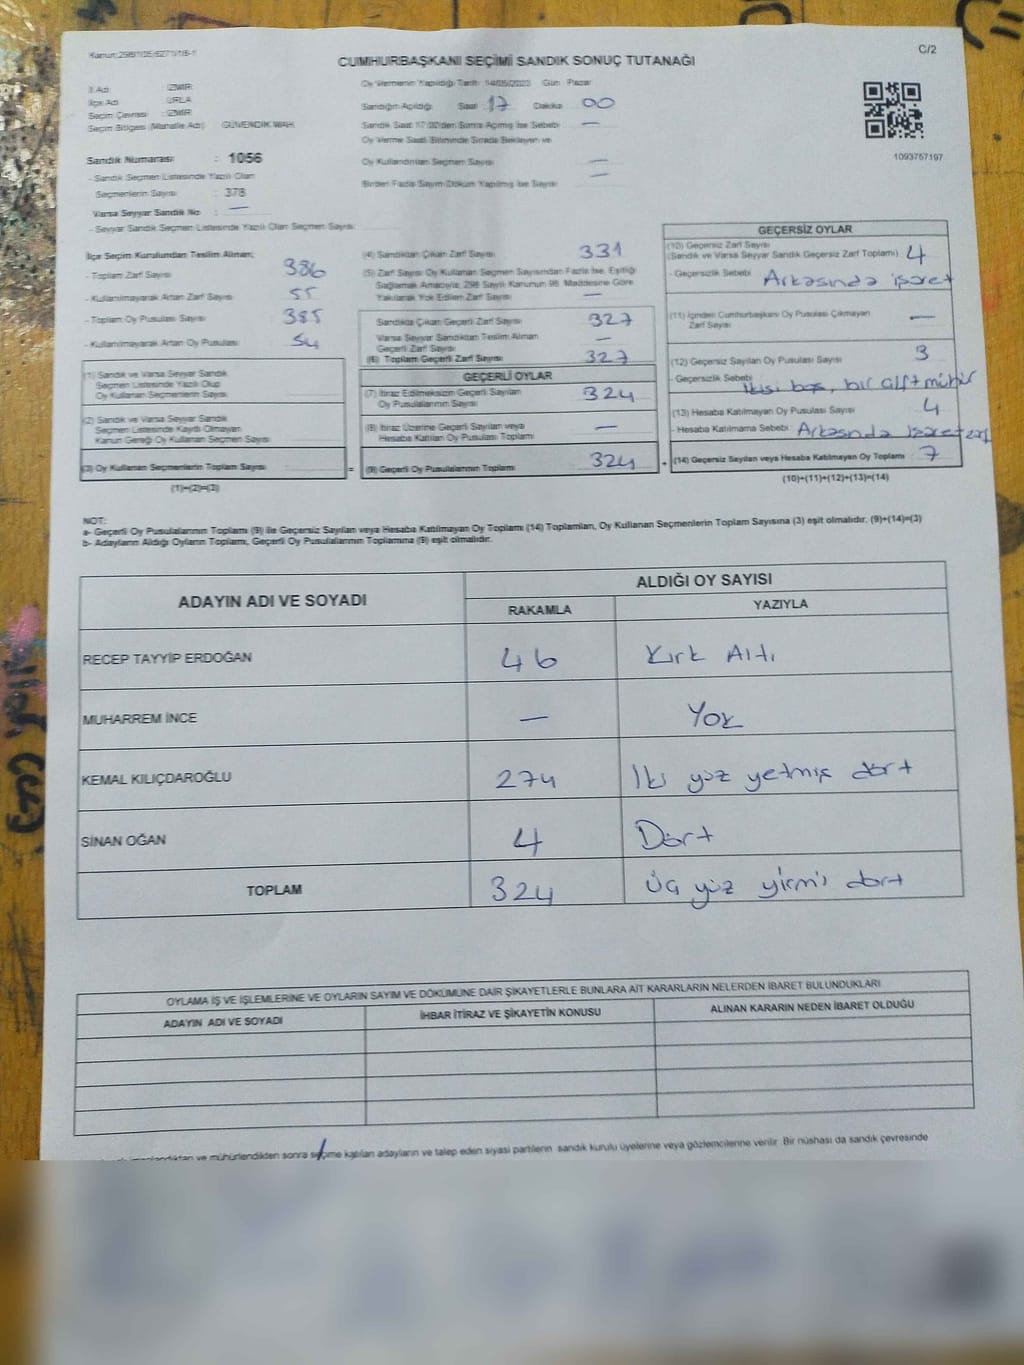 C/2
CUMHURBAŞKANI SEÇİMİ SANDIK SONUÇ TUTANAĞI
İl Adı : İZMİR
İlçe Adı : URLA
Seçim Çevresi : İZMİR
Seçim Bölgesi (Mahalle Adı) : GÜVENDİK MAH.
Sandık Numarası : 1056
- Sandık Seçmen Listesinde Yazılı Olan
Seçmenlerin Sayısı : 378
Varsa Seyyar Sandık No : —
- Seyyar Sandık Seçmen Listesinde Yazılı Olan Seçmen Sayısı
Oy Vermenin Yapıldığı Tarih 14/05/2023 Gün : Pazar
Sandığın Açıldığı Saat 17 Dakika 00
Sandık Saat 17:00'den Sonra Açılmış İse Sebebi —
Oy Verme Saati Bitiminde Sırada Bekleyen ve
Oy Kullandırılan Seçmen Sayısı —
Birden Fazla Sayım Döküm Yapılmış İse Sayısı —
1093757197
İlçe Seçim Kurulundan Teslim Alınan;
- Toplam Zarf Sayısı 386
- Kullanılmayarak Artan Zarf Sayısı 55
- Toplam Oy Pusulası Sayısı 385
- Kullanılmayarak Artan Oy Pusulası 54
(1) Sandık ve Varsa Seyyar Sandık
Seçmen Listesinde Yazılı Olup
Oy Kullanan Seçmenlerin Sayısı
(2) Sandık ve Varsa Seyyar Sandık
Seçmen Listesinde Kayıtlı Olmayan
Kanun Gereği Oy Kullanan Seçmen Sayısı
(3) Oy Kullanan Seçmenlerin Toplam Sayısı =
(1)+(2)=(3)
(4) Sandıktan Çıkan Zarf Sayısı 331
(5) Zarf Sayısı Oy Kullanan Seçmen Sayısından Fazla İse, Eşitliği
Sağlamak Amacıyla, 298 Sayılı Kanunun 98. Maddesine Göre
Yakılarak Yok Edilen Zarf Sayısı —
Sandıkta Çıkan Geçerli Zarf Sayısı 327
Varsa Seyyar Sandıktan Teslim Alınan
Geçerli Zarf Sayısı —
(6) Toplam Geçerli Zarf Sayısı 327
GEÇERLİ OYLAR
(7) İtiraz Edilmeksizin Geçerli Sayılan
Oy Pusulalarının Sayısı 324
(8) İtiraz Üzerine Geçerli Sayılan veya
Hesaba Katılan Oy Pusulası Toplamı —
(9) Geçerli Oy Pusulalarının Toplamı 324 +
GEÇERSİZ OYLAR
(10) Geçersiz Zarf Sayısı
(Sandık ve Varsa Seyyar Sandık Geçersiz Zarf Toplamı) 4
- Geçersizlik Sebebi : Arkasında işaret
(11) İçinden Cumhurbaşkanı Oy Pusulası Çıkmayan
Zarf Sayısı —
(12) Geçersiz Sayılan Oy Pusulası Sayısı 3
- Geçersizlik Sebebi : ikisi boş, bir çift mühür
(13) Hesaba Katılmayan Oy Pusulası Sayısı 4
- Hesaba Katılmama Sebebi : Arkasında işaret zarf
(14) Geçersiz Sayılan veya Hesaba Katılmayan Oy Toplamı : 7
(10)+(11)+(12)+(13)=(14)
NOT:
a- Geçerli Oy Pusulalarının Toplamı (9) ile Geçersiz Sayılan veya Hesaba Katılmayan Oy Toplamı (14) Toplamları, Oy Kullanan Seçmenlerin Toplam Sayısına (3) eşit olmalıdır. (9)+(14)=(3)
b- Adayların Aldığı Oyların Toplamı, Geçerli Oy Pusulalarının Toplamına (9) eşit olmalıdır.
ADAYIN ADI VE SOYADI
ALDIĞI OY SAYISI
RAKAMLA YAZIYLA
RECEP TAYYİP ERDOĞAN 46 Kırk Altı
MUHARREM İNCE — Yok
KEMAL KILIÇDAROĞLU 274 İki yüz yetmiş dört
SİNAN OĞAN 4 Dört
TOPLAM 324 Üç yüz yirmi dört
OYLAMA İŞ VE İŞLEMLERİNE VE OYLARIN SAYIM VE DÖKÜMÜNE DAİR ŞİKAYETLERLE BUNLARA AİT KARARLARIN NELERDEN İBARET BULUNDUKLARI
ADAYIN ADI VE SOYADI İHBAR İTİRAZ VE ŞİKAYETİN KONUSU ALINAN KARARIN NEDEN İBARET OLDUĞU
ve mühürlendikten sonra seçime katılan adayların ve talep eden siyasi partilerin sandık kurulu üyelerine veya gözlemcilerine verilir. Bir nüshası da sandık çevresinde